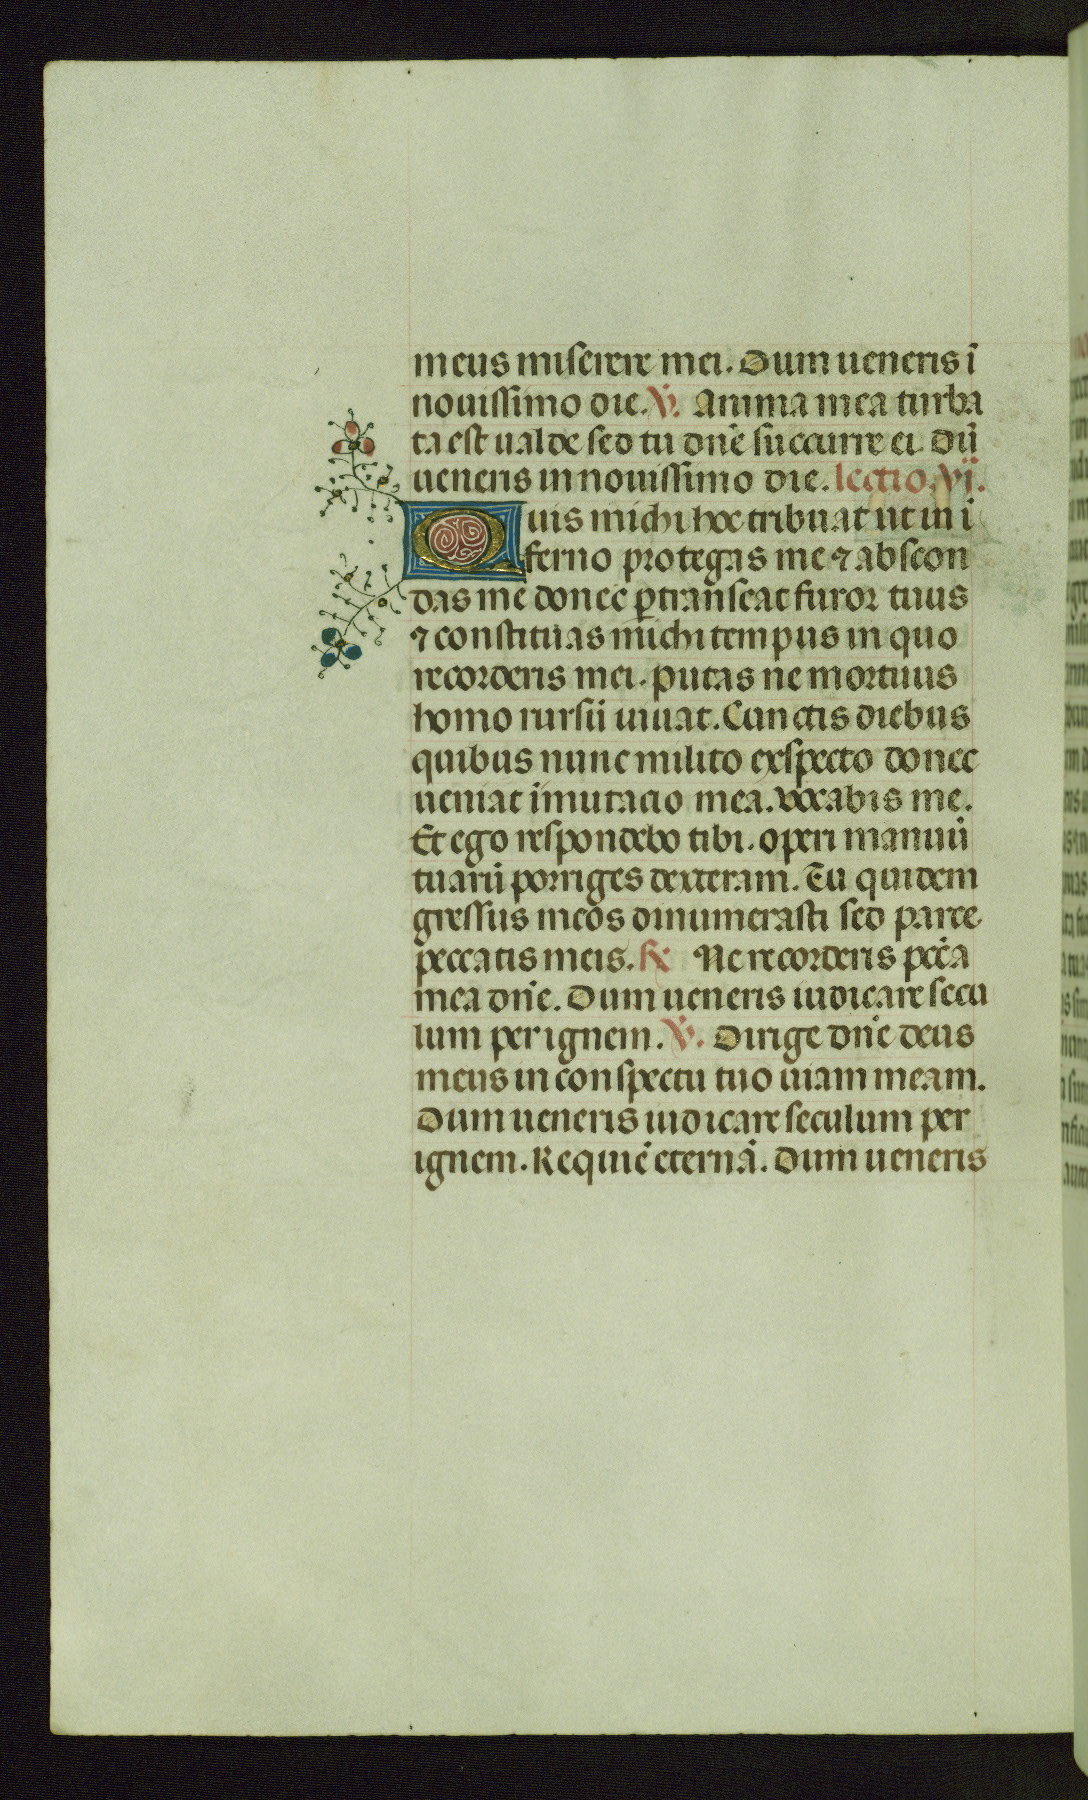 meus miserere mei. Dum ueneris ī
nouissimo die. V. Anima mea turba
ta est ualde sed tu dn̄e succurre ei. Dū
ueneris in nouissimo die. lectio. vi.
Quis michi hoc tribuat ut in ī
ferno protegas me ⁊ abscon
das me donec ꝑtranseat furor tuus
⁊ constituas michi tempus in quo
recorderis mei. putas ne mortuus
homo rursū uiuat. Cunctis diebus
quibus nunc milito exspecto donec
ueniat īmutacio mea. vocabis me.
Et ego respondebo tibi. operi manuū
tuarū porriges dexteram. Tu quidem
gressus meos dinumerasti sed parce
peccatis meis. ℟ Ne recorderis pctā
mea dn̄e. Dum ueneris iudicare secu
lum per ignem. V. Dirige dn̄e deus
meus in conspectu tuo uiam meam.
Dum ueneris iudicare seculum per
ignem. Requiē eternā. Dum ueneris